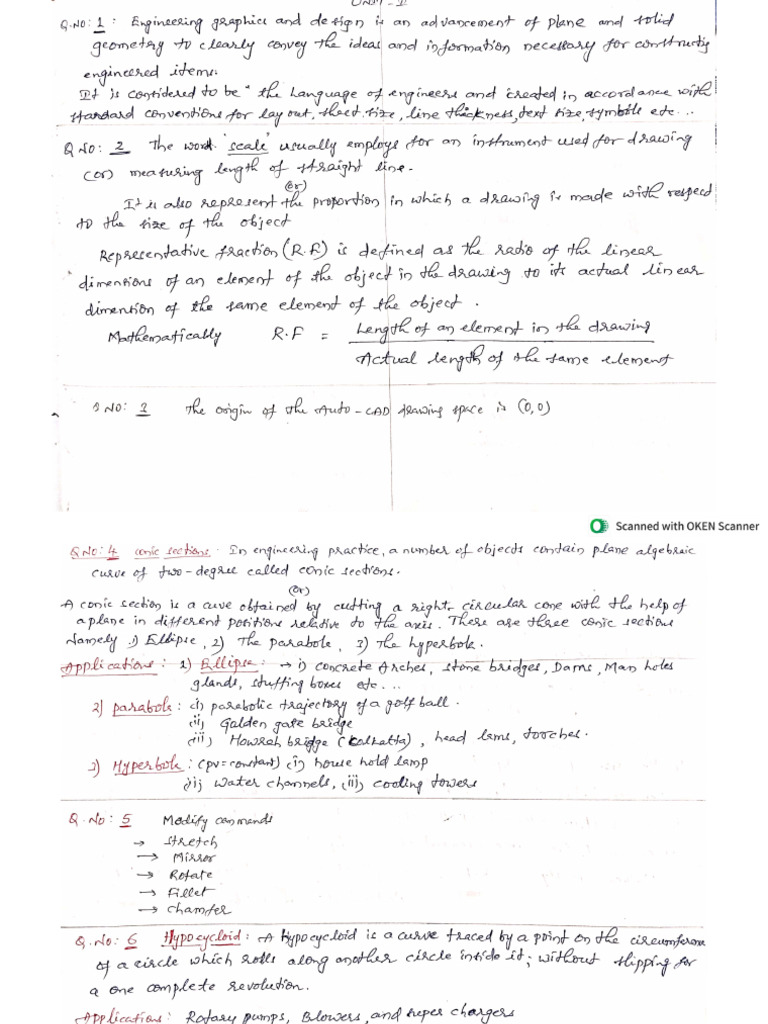 UNIT - I
Q.NO: 1 : Engineering graphics and design is an advancement of plane and solid
geometry to clearly convey the ideas and information necessary for constructig
engineered items.
It is considered to be "the Language of engineers and created in accordance with
standard conventions for lay out, sheet size, line thickness, text size, symbols etc...
Q NO: 2 The word 'scale' usually employs for an instrument used for drawing
(or) measuring length of straight line.
(or)
It is also represent the proportion in which a drawing is made with respect
to the size of the object
Representative fraction (R.F) is defined as the ratio of the linear
dimentions of an element of the object in the drawing to its actual linear
dimention of the same element of the object.
Mathematically R.F = Length of an element in the drawing
Actual length of the same element
Q NO: 3 The origin of the Auto-CAD drawing space is (0,0)
Scanned with OKEN Scanner
Q NO: 4 conic sections. In engineering practice, a number of objects contain plane algebraic
curve of two-degree called conic sections.
(or)
A conic section is a cuve obtained by cutting a right circular cone with the help of
a plane in different positions relative to the axis. There are three conic sections
Namely 1) Ellipse, 2) The parabola, 3) The hyperbola.
Applications: 1) Ellipse: → i) concrete Arches, stone bridges, Dams, Man holes
glands, stuffing boxes etc...
2) parabola: (i) parabolic trajectory of a golf ball.
(ii) Golden gate bridge
(iii) Howrah bridge (kolkatta), head lams, torches.
3) Hyperbola: (pv=constant) (i) house hold lamp
(ii) water channels, (iii) cooling towers
Q. No: 5 Modify commands
→ stretch
→ Mirror
→ Rotate
→ Fillet
→ chamfer
Q. No: 6 Hypocycloid: A Hypocycloid is a curve traced by a point on the circumference
of a circle which rolls along another circle inside it; without slipping for
a one complete revolution.
Applications: Rotary pumps, Blowers, and super chargers